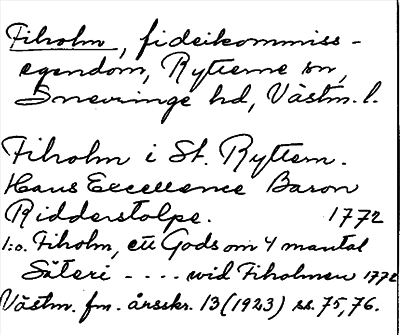 Fiholm, fideikommiss-
egendom, Rytterne sn,
Snevringe hd, Västm. l.
Fiholm i St. Ryttern.
Hans Excellence Baron
Ridderstolpe. 1772
1:o. Fiholm, ett Gods om 4 mantal
Säteri - - - - wid Fiholmen 1772
Västm. fm. årsskr. 13 (1923) ss. 75, 76.